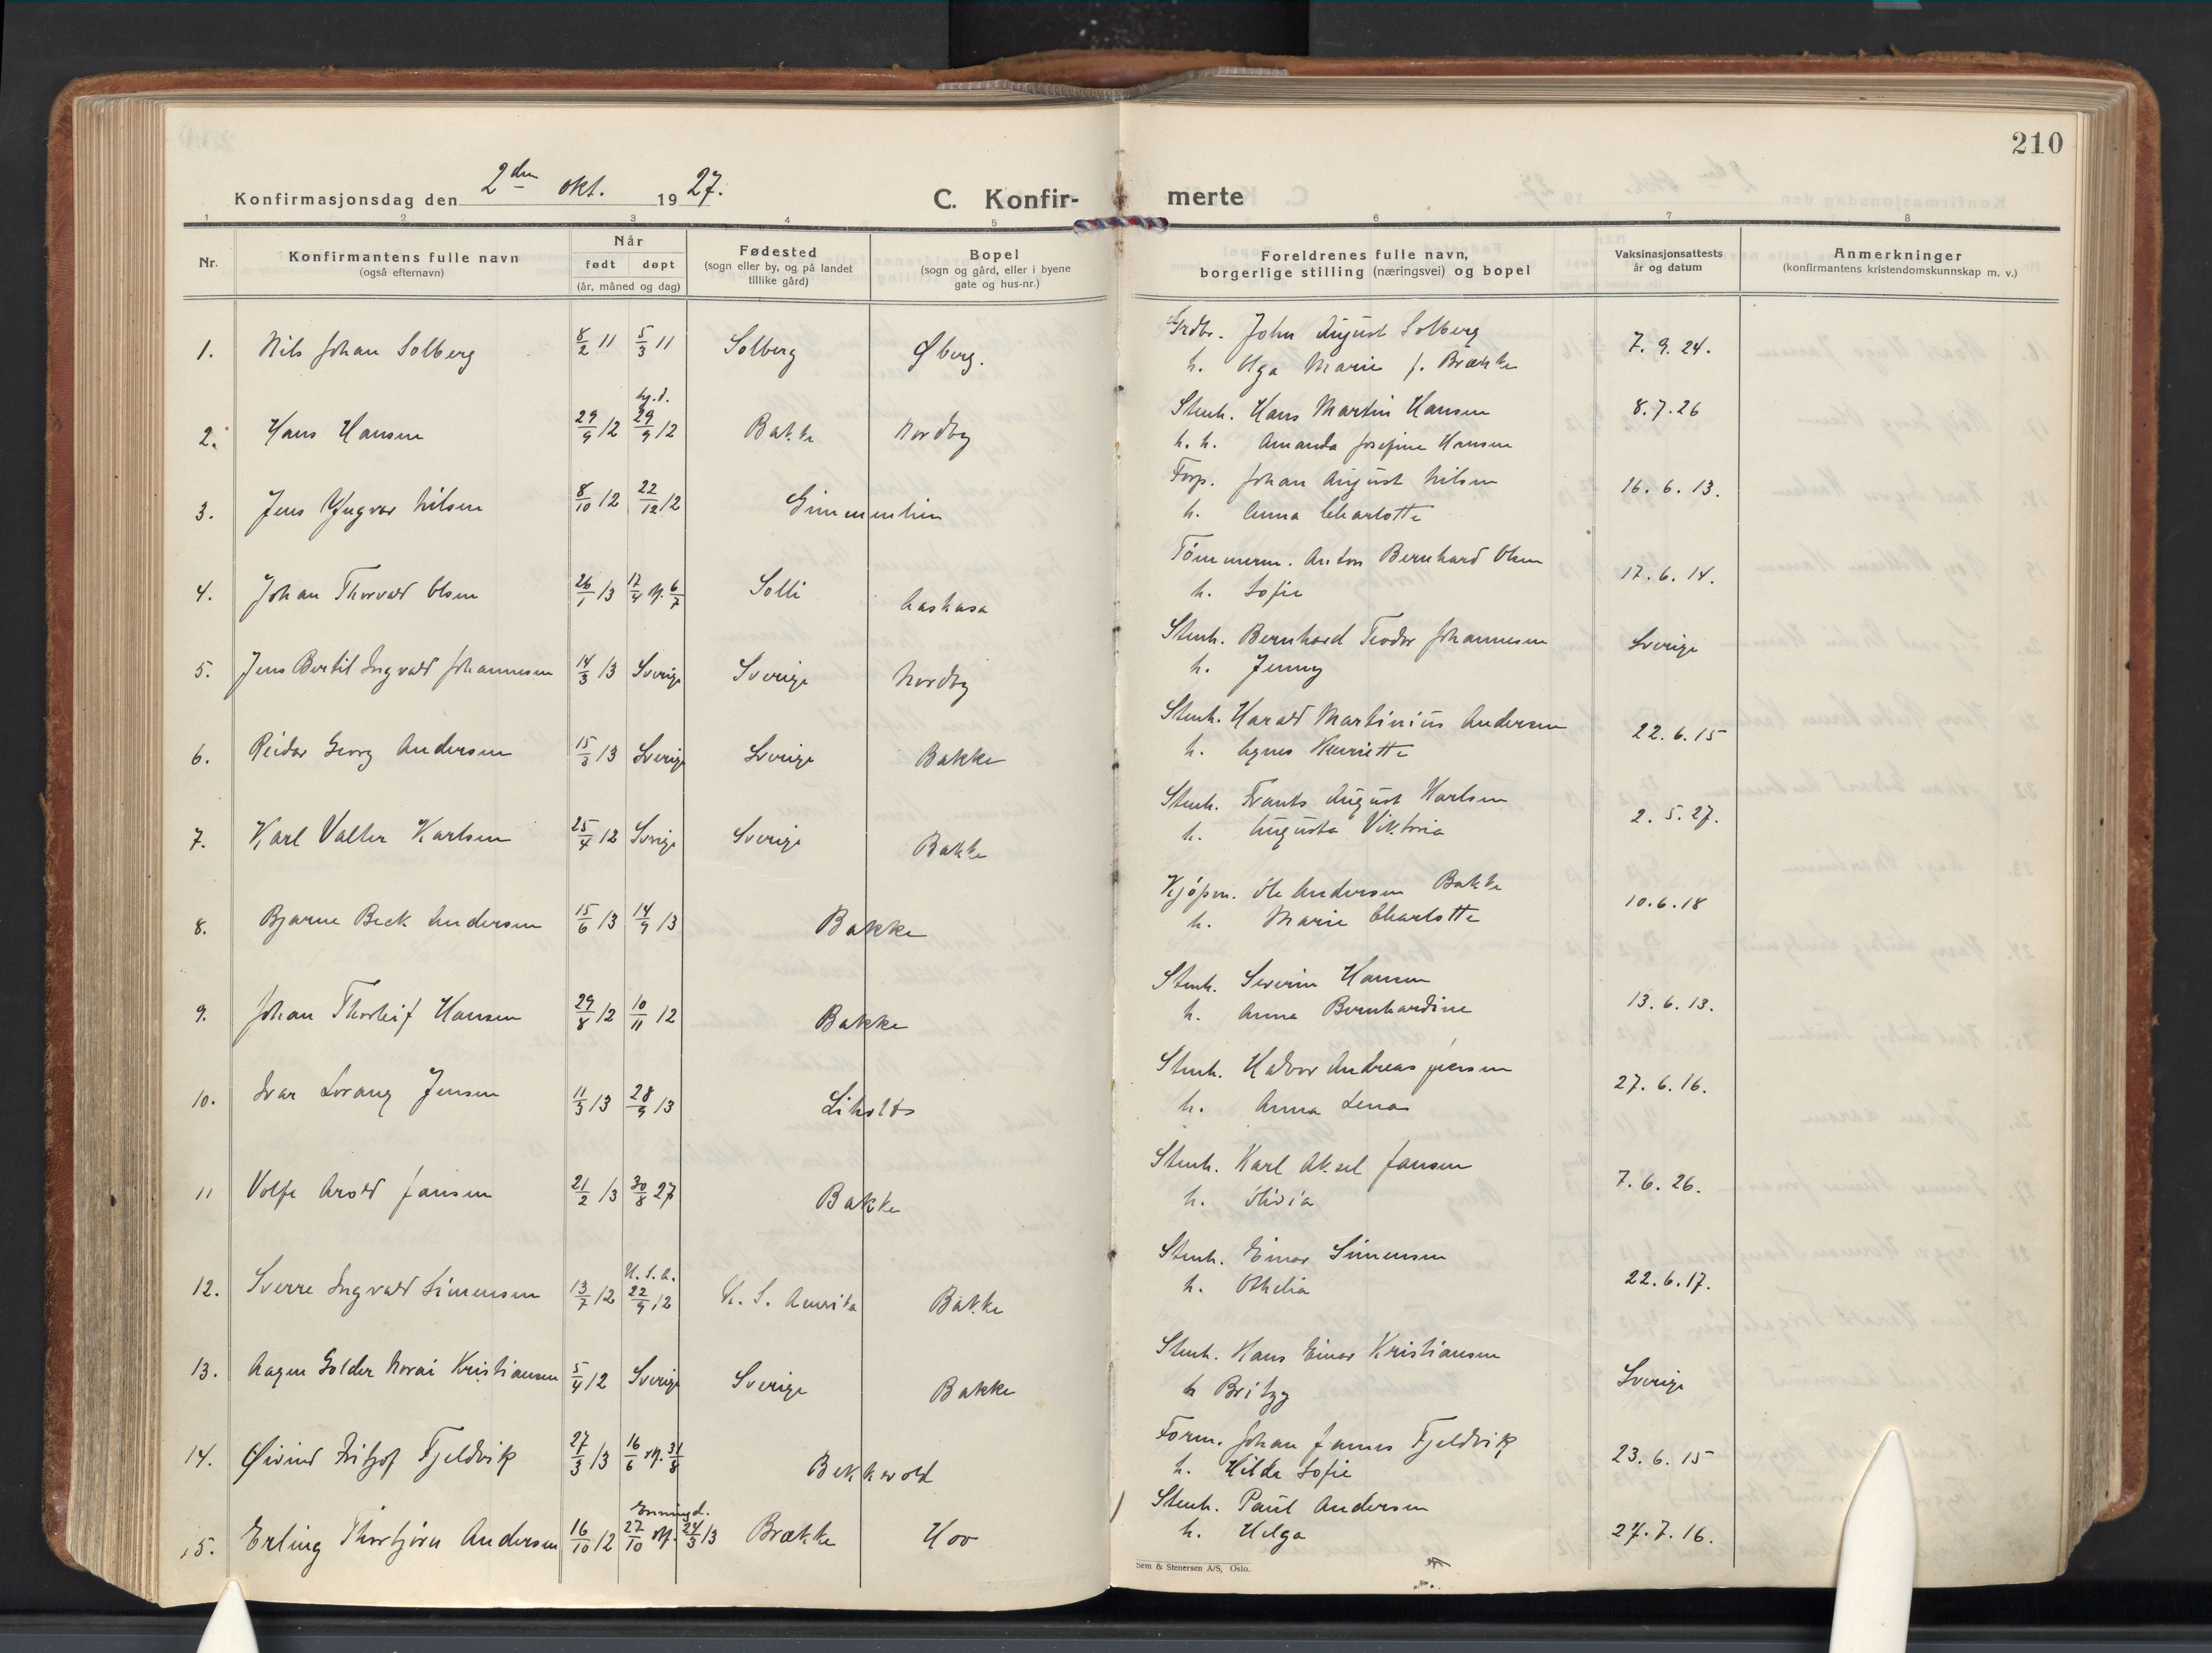 210
Konfirmasjonsdag den 2den okt. 1927.
C. Konfir-
merte
1 2 3 4 5 6 7 8
Nr.
Konfirmantens fulle navn
(også efternavn)
Når
født døpt
(år, måned og dag)
Fødested
(sogn eller by, og på landet
tillike gård)
Bopel
(sogn og gård, eller i byene
gate og hus-nr.)
Foreldrenes fulle navn,
borgerlige stilling (næringsvei) og bopel
Vaksinasjonsattests
år og datum
Anmerkninger
(konfirmantens kristendomskunnskap m. v.)
Grdbr. John August Solberg
1. Nils Johan Solberg 8/2 11 5/3 11 Solberg Øberg. 7. 9. 24.
h. Aga Marie f. Brække
hj. d.
Stenh. Hans Martin Hansen 8. 7. 26
2. Hans Hansen 29/9 12 29/9 12 Bakke Nordby
h. h. Amanda Josefine Hansen
Forp. Johan August Nilsen
3. Jens Yngvar Nilsen 8/10 12 22/12 12 16. 6. 13.
h. Anna Charlotte
Tømmerm. Anton Bernhard Olsen
4. Johan Thorvald Olsen 26/1 13 17/4 6/7 Solli Aashasa 17. 6. 14.
h. Sofie
Stenh. Bernhard Teodor Johannesen
5. Jens Bertil Ingvald Johannesen 14/3 13 Sverige Sverige Nordby Sverige
h. Jenny
Stenh. Harald Martinius Andersen
6. Reidar Georg Andersen 15/3 13 Sverige Sverige Bakke 22. 6. 15
h. Agnes Henriette
Stenh. Frants August Karlsen
7. Karl Valter Karlsen 25/4 12 Sverige Sverige Bakke 2. 5. 27.
h. Augusta Viktoria
Kjøpm. Ole Andersen Bakke
8. Bjarne Beck Andersen 15/6 13 14/9 13 Bakke 10. 6. 18
h. Marie Charlotte
Stenh. Severin Hansen
9. Johan Thorleif Hansen 29/8 12 10/11 12 Bakke 13. 6. 13.
h. Anna Bernhardine
Stenh. Halvor Andreas Jensen
10. Ivar Lorang Jensen 11/3 13 28/9 13 Liholt 27. 6. 16.
h. Anna Lena
Stenh. Karl Aksel Jansen
11 Volfe Arold Jansen 21/2 13 30/8 27 Bakke 7. 6. 26.
h. Olivia
U. S. A.
Stenh. Einar Simensen
12. Sverre Ingvald Simensen 13/7 12 22/9 12 U. S. Amrika Bakke 22. 6. 17.
h. Othelia
Stenh. Hans Einar Kristiansen
13. Aagen Golder Norai Kristiansen 5/4 12 Sverige Sverige Bakke Sverige
h Britzy
Form. Johan James Fjeldvik
14. Øivind Fritjof Fjeldvik 27/3 13 16/6 31/8 Bekkevold 23. 6. 15
h. Hilda Sofie
Enningd.
Stenh. Paul Andersen
15. Erling Thorbjørn Andersen 16/10 12 27/10 24/3 13 Brække Hov 27. 7. 16.
h. Helga
Sem & Stenersen A/S, Oslo.